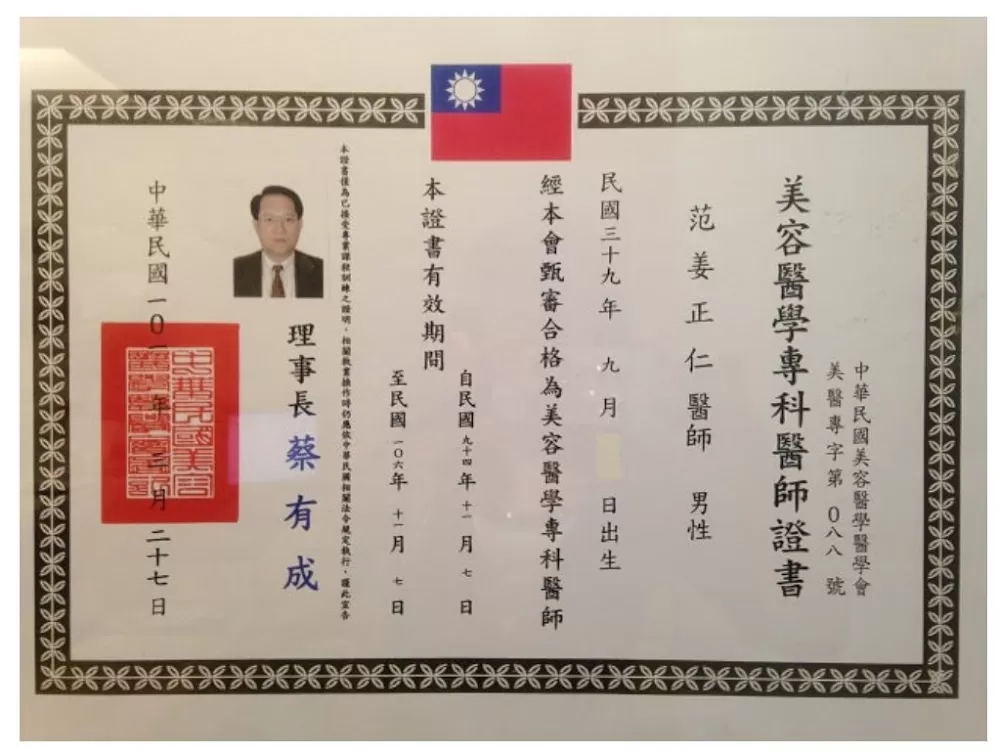 中華民國美容醫學醫學會
美醫專字第 0八八 號
美容醫學專科醫師證書
范姜正仁醫師 男性
民國三十九年 九 月 日出生
經本會甄審合格為美容醫學專科醫師
本證書有效期間
自民國 九十四 年 十一 月 七 日
至民國 一0六 年 十一 月 七 日
本證書僅為已接受專業課程訓練之證明，相關執業操作時仍應依中華民國相關法令規定執行，謹此宣告
理事長 蔡有成
中華民國一0一年 三 月 二十七 日